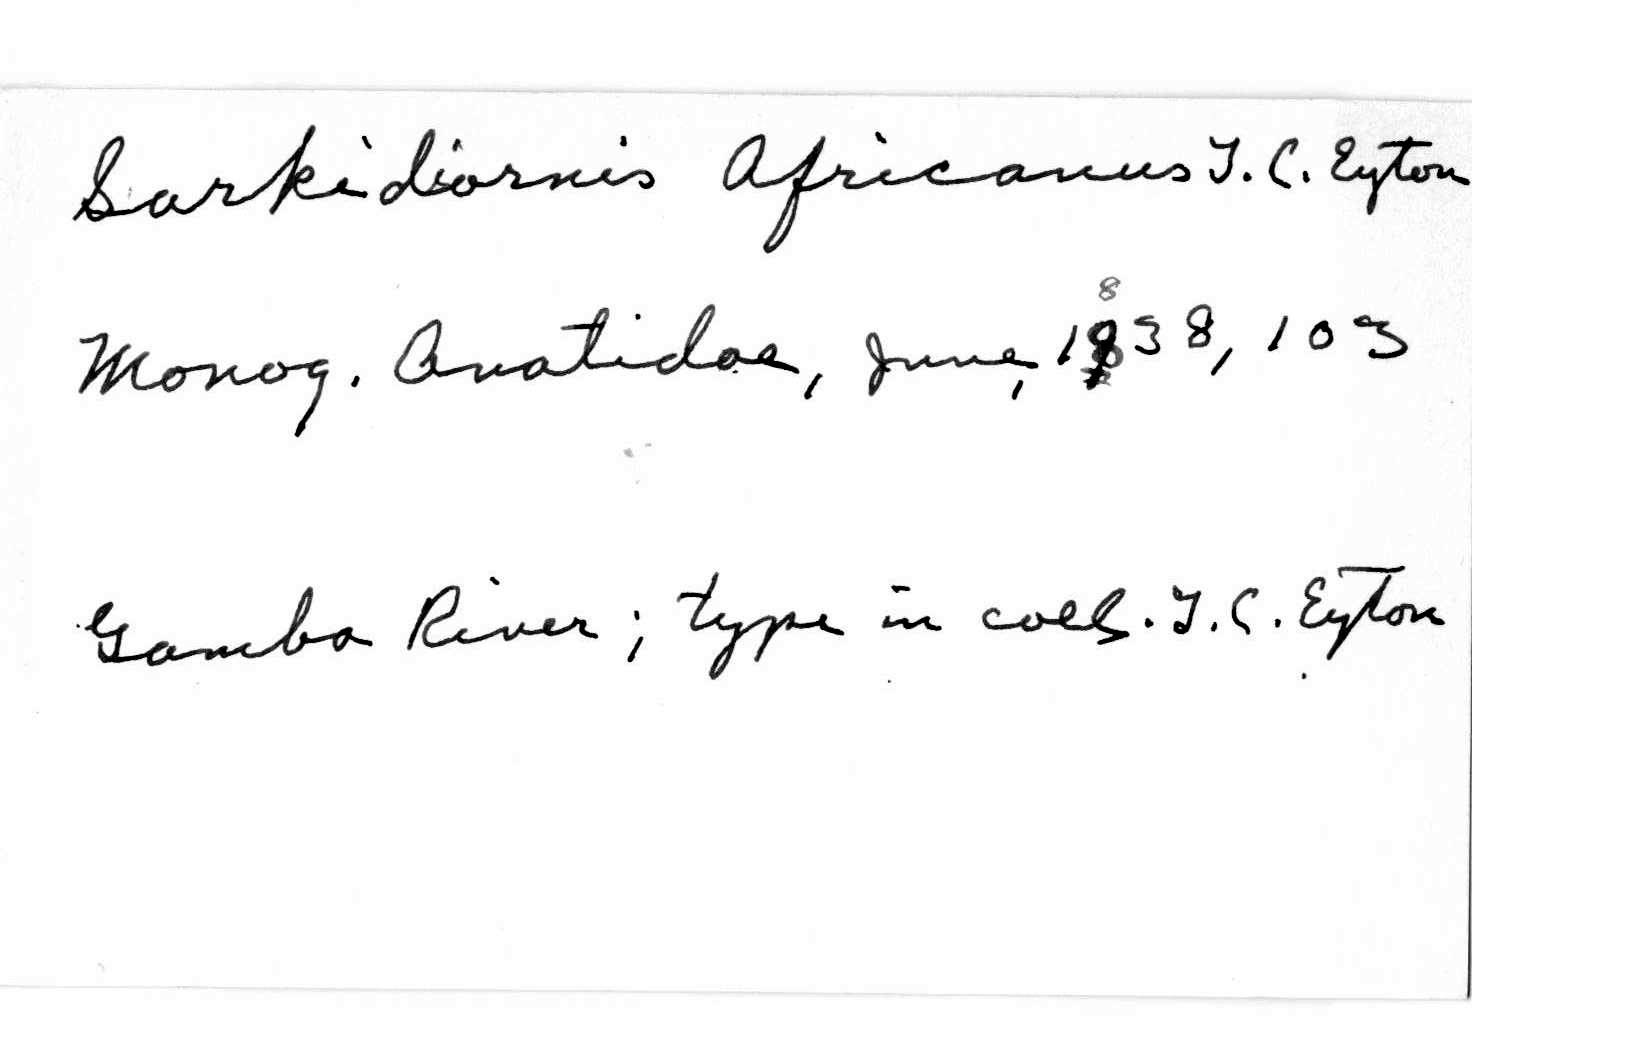 Sarkidiornis Africanus T. C. Eyton
Monog. Anatidae, June, 1838, 103
Gamba River; type in coll. T. C. Eyton